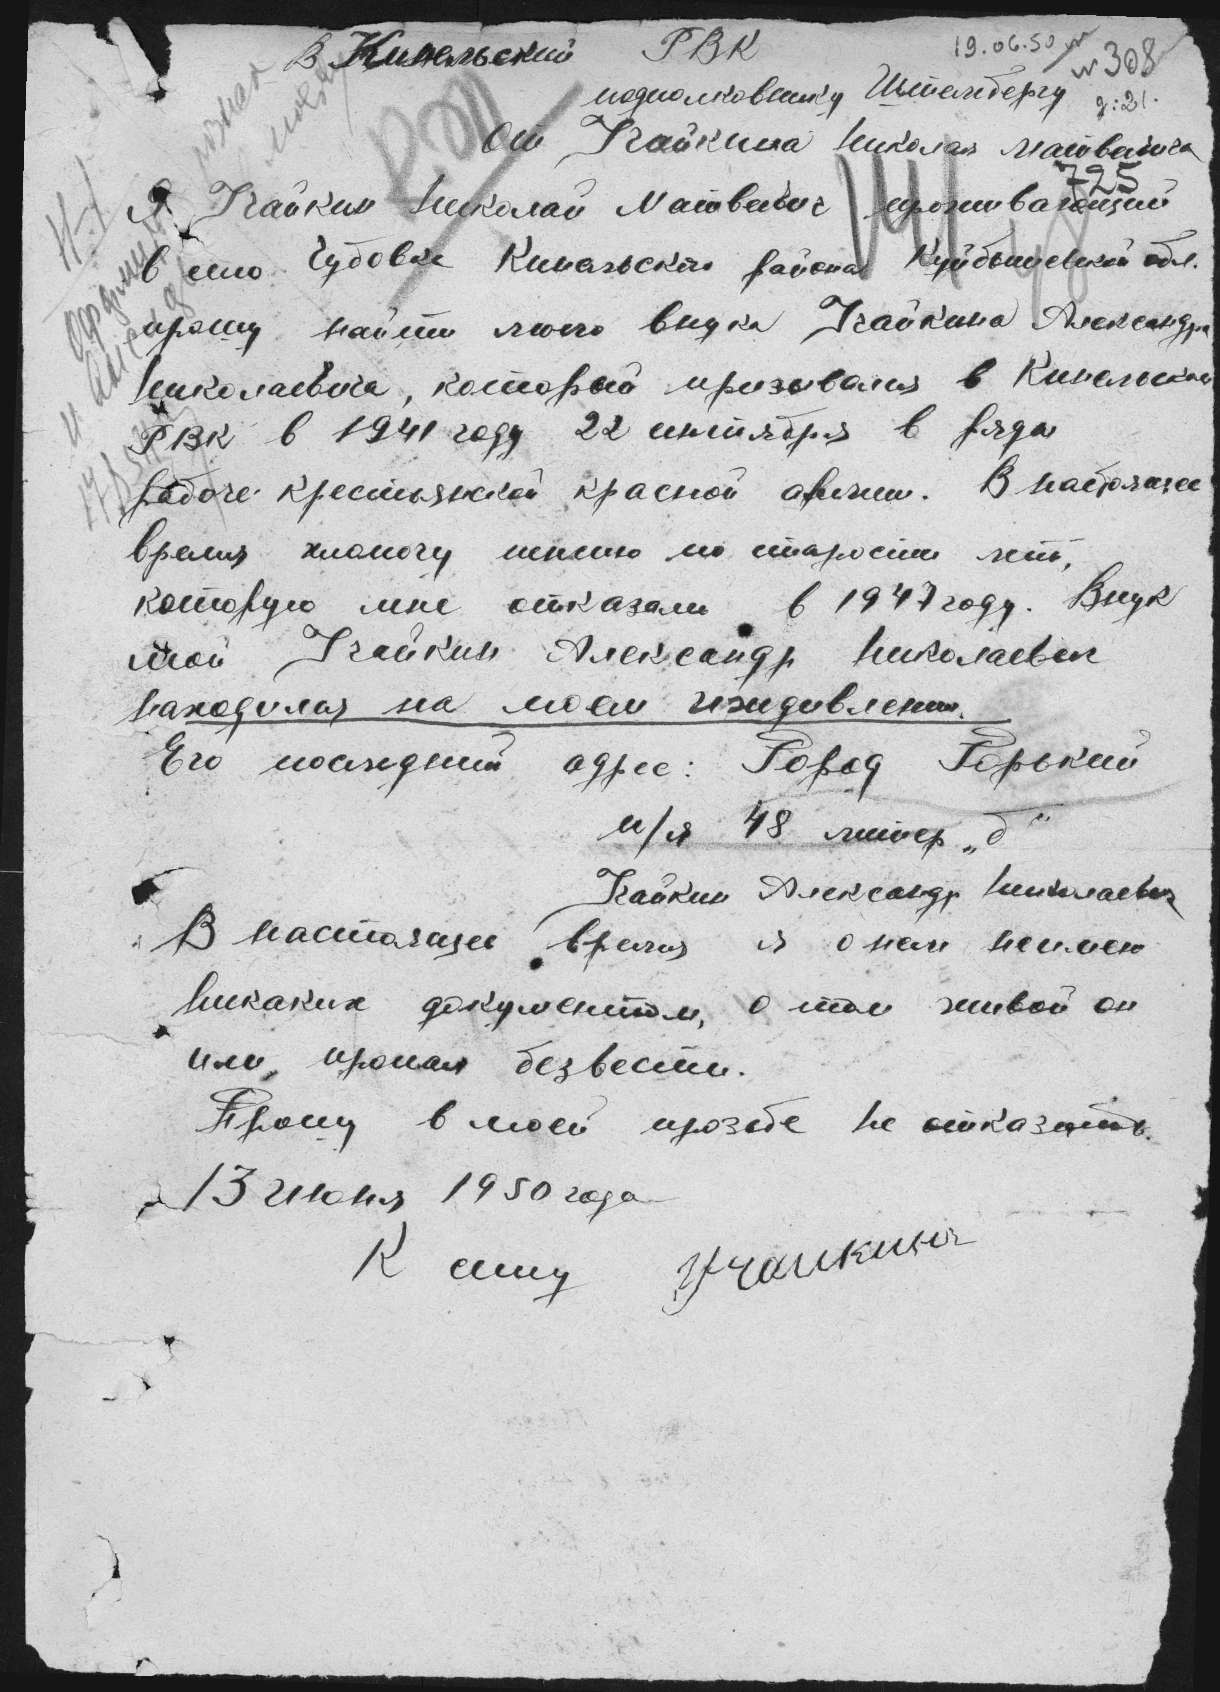 В Кинельский РВК
19.06.50
№ 308
подполковнику Штенбергу
От Учайкина Николая Матвеевича
725
Я Учайкин Николай Матвеевич проживающий
в село Чубовка Кинельского района Куйбышевской обл.
прошу найти моего внука Учайкина Александра
Николаевича, который призывался в Кинельском
РВК в 1941 году 22 сентября в ряды
рабоче крестьянской красной армии. В настоящее
время хлопочу пенсию по старости лет,
которую мне отказали в 1947 году. Внук
мой Учайкин Александр Николаевич
находился на моем иждивлении.
Его последний адрес: Город Горький
п/я 48 литер „б“
Учайкин Александр Николаевич
В настоящее время я о нем неимею
никаких документом, о том живой он
или пропал безвести.
Прошу в моей прозьбе не отказать.
13 июня 1950 года
К сему Учайкин